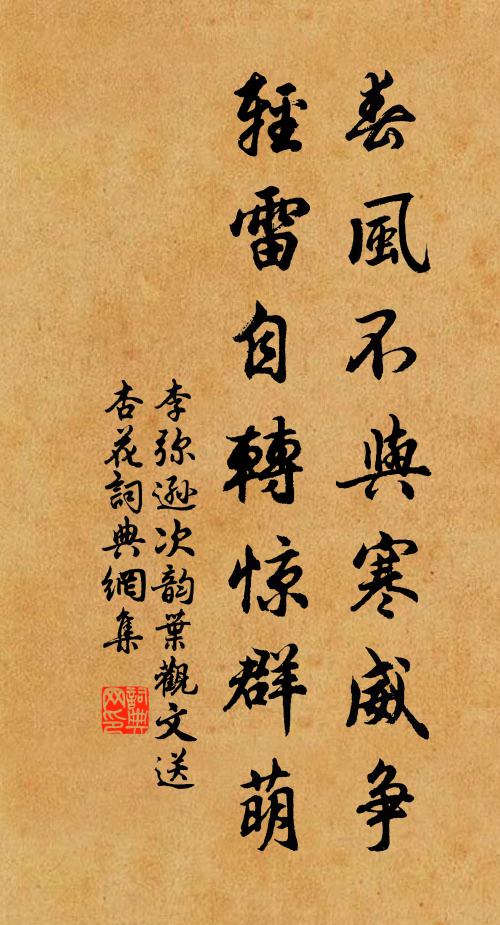 春風不與寒威争
輕雷自轉惊群萌
李弥遜次韵葉觀文送
杏花詞典網集
詞典網印